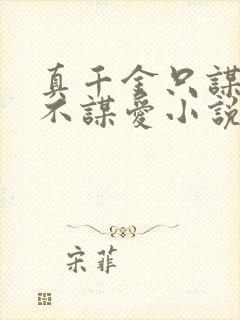 真千金只謀
不謀愛小說
宋菲